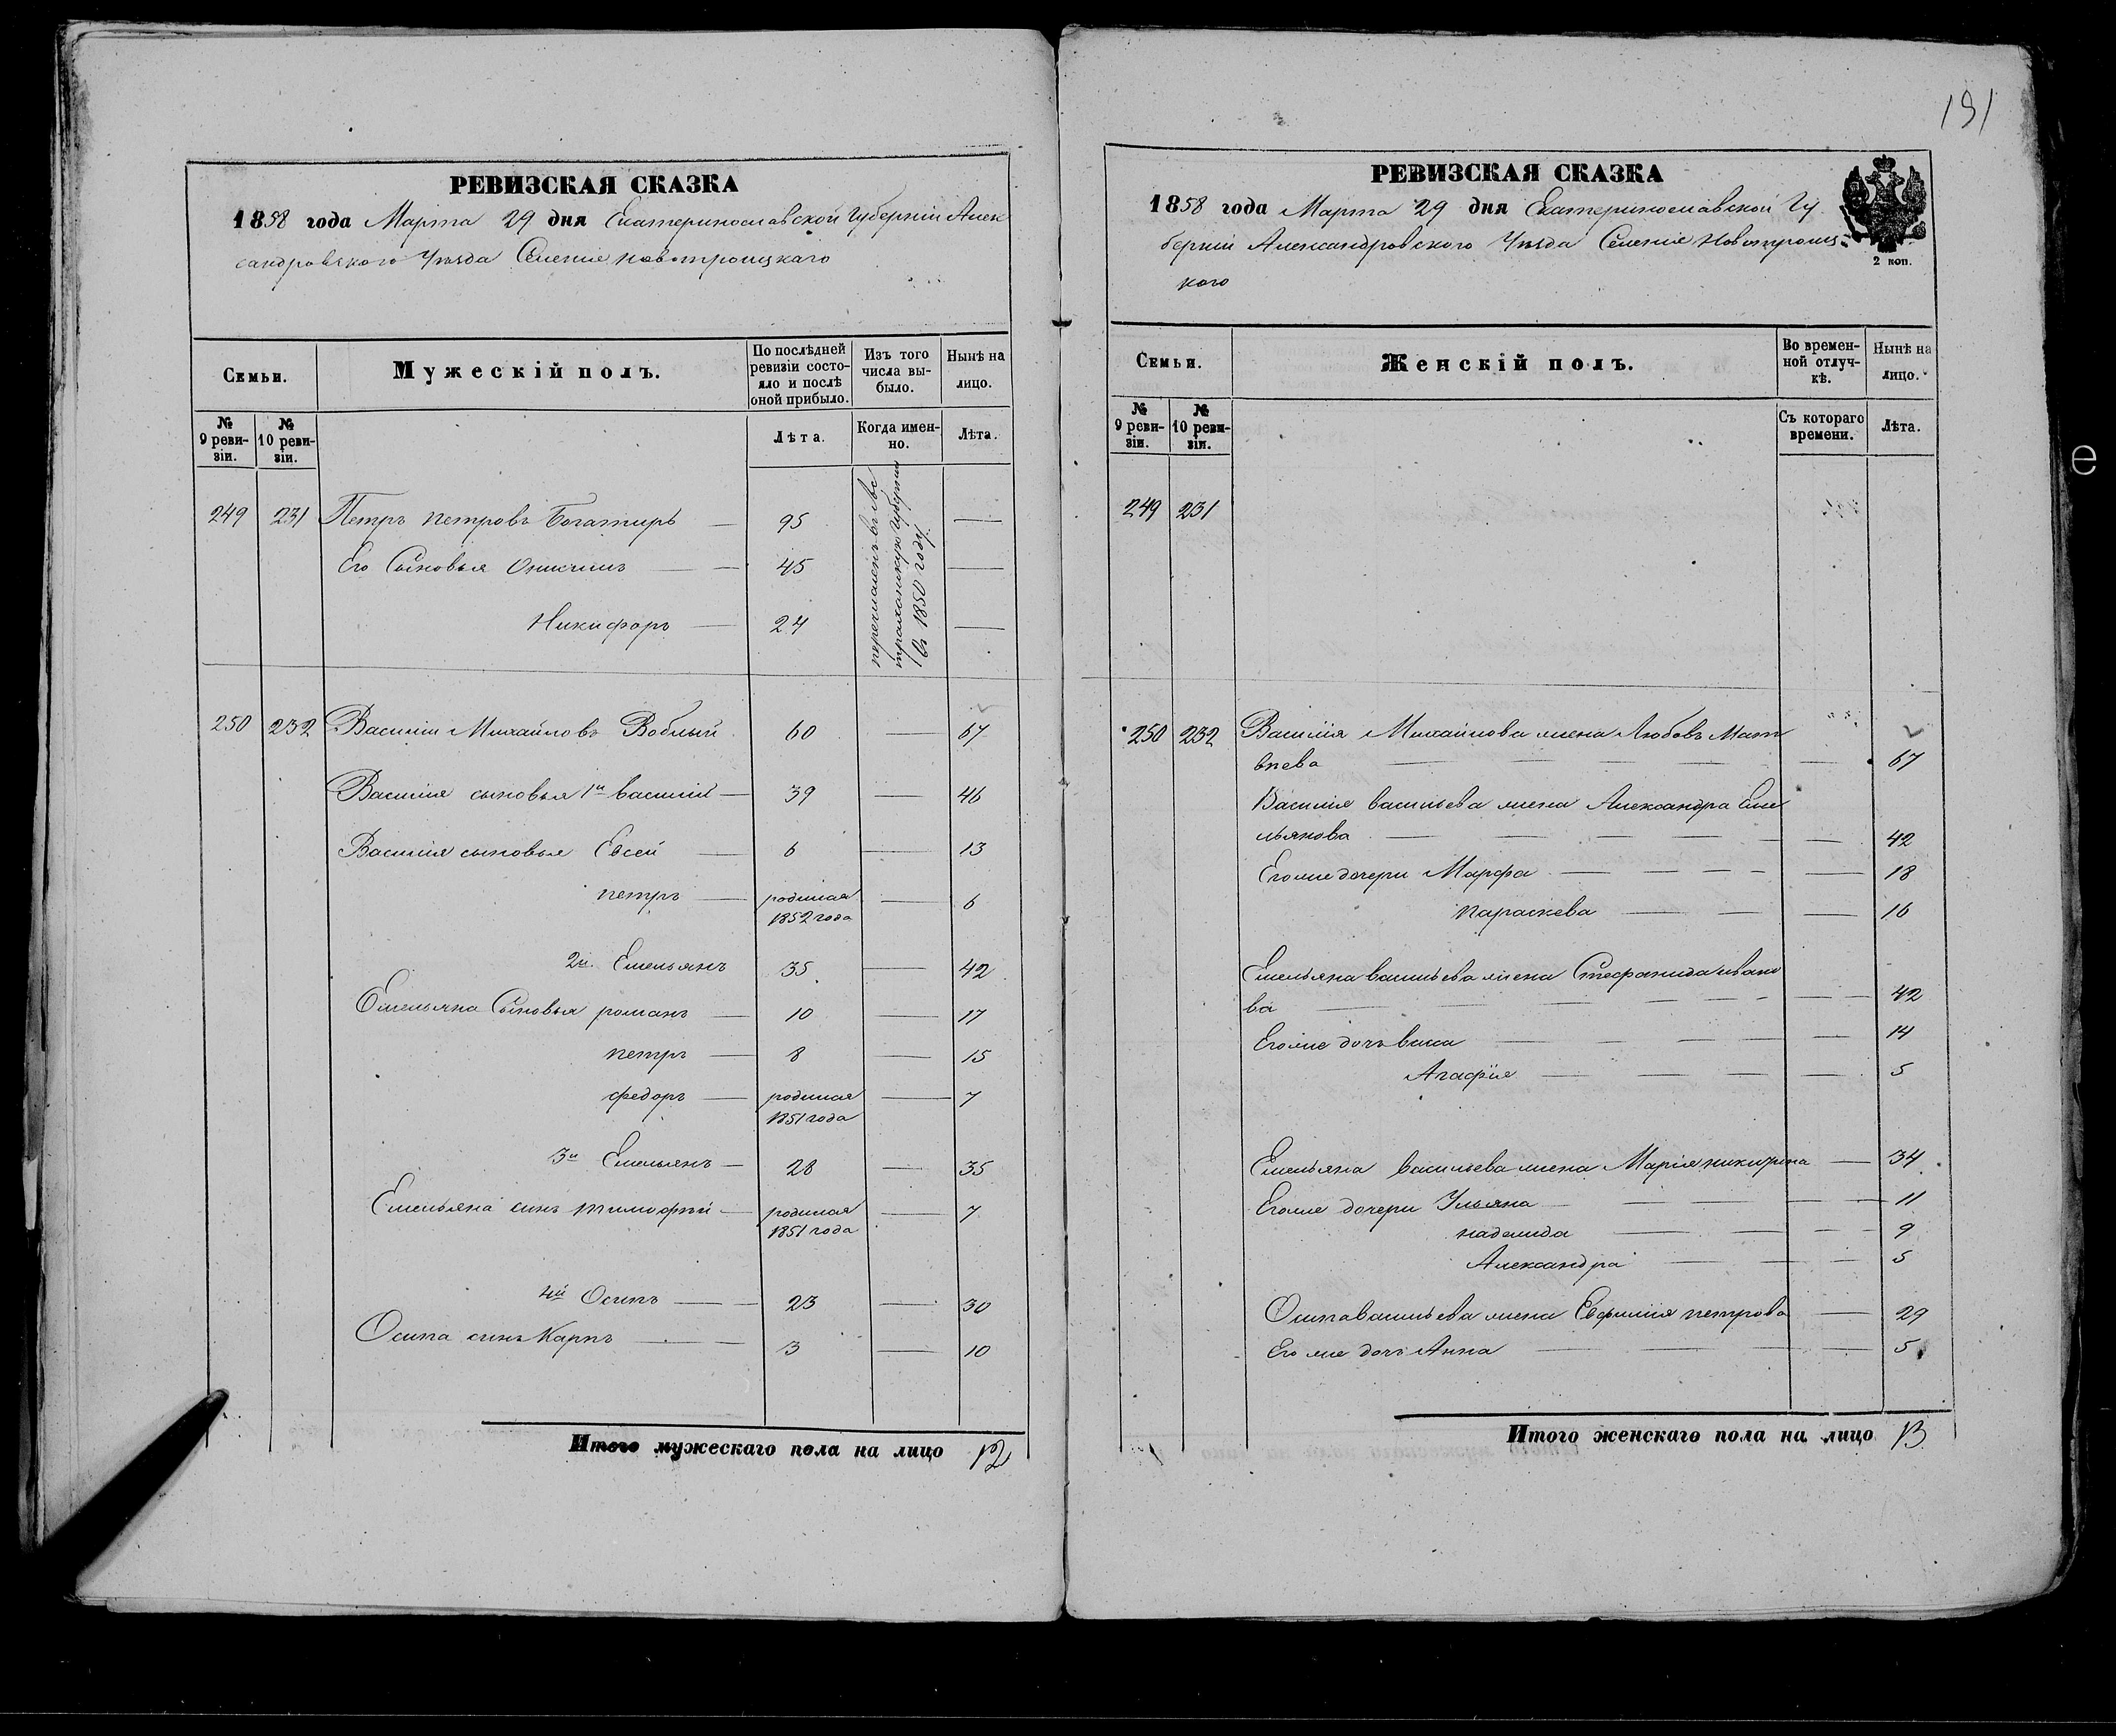 191
РЕВИЗСКАЯ СКАЗКА
1858 года Марта 29 дня Екатеринославской Губерніи Алек
сандровского Уѣзда Селенія Новотроицкаго
Семьи.
Мужескій полъ.
По послѣдней ревизіи состо-
яло и послѣ оной прибыло.
Изъ того числа вы-
было.
Нынѣ на лицо.
№ 9 реви-
зіи.
№ 10 реви-
зіи.
Лѣта.
Когда имен-
но.
Лѣта.
249 231 Петръ петровъ Богатиръ — 95 —
Его Сыновья — 45 —
Никифоръ — 24 —
въ 1850 году
250 232 Василій Михайловъ Воблый 60 — 67
Василія сыновья 1й василій — 39 — 46
Василія сыновья Евсей — 6 — 13
петръ — родился 1852 года — 6
2й Емельянъ 35 — 42
Емельяна Сыновья романъ — 10 — 17
петръ — 8 — 15
федоръ — родился 1851 года — 7
3й Емельянъ — 28 — 35
Емельяна синъ тимофѣй — родился 1851 года — 7
4й Осипъ — 23 — 30
Осипа синъ Карпъ — 3 — 10
Итого мужескаго пола на лицо 12
РЕВИЗСКАЯ СКАЗКА
2 коп.
1858 года Марта 29 дня Екатеринославской Гу
берніи Александровского Уѣзда Селенія Новотроиц-
кого
Семьи.
Женскій полъ.
Во времен-
ной отлуч-
кѣ.
Нынѣ на лицо.
№ 9 реви-
зіи.
№ 10 реви-
зіи.
Съ котораго времени.
Лѣта.
249 231
250 232 Василія Михайлова жена Любовъ Мат
вѣева — 67
Василія васильева жена Александра Еме
льянова — 42
Егоже дочери Марфа — 18
параскева — 16
Емельяна васильева жена Стефанида ивано
ва — 42
Егоже дочь — 14
Агафія — 5
Емельяна васильева жена Марія никитина — 34
Егоже дочери Ульяна — 11
надежда — 9
Александра — 5
Осипа васильева жена Евфимія петрова — 29
Его же дочь Анна — 5
Итого женскаго пола на лицо 13